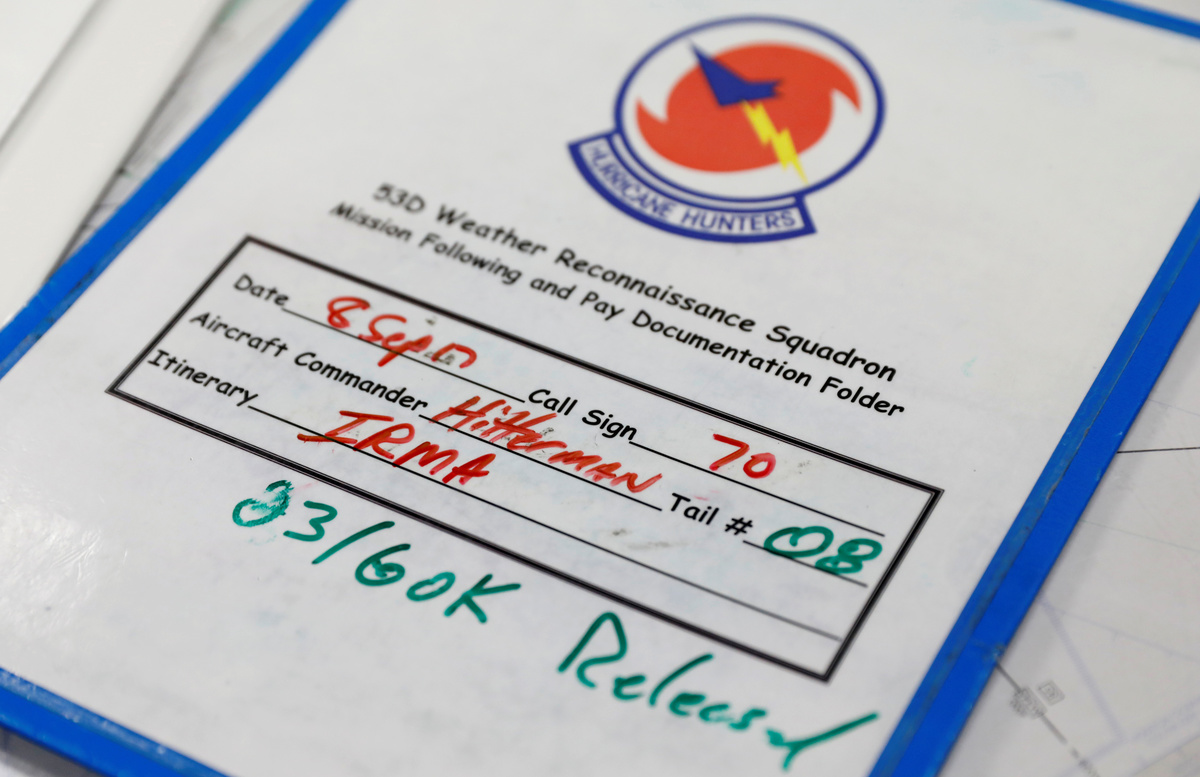 HURRICANE HUNTERS
53D Weather Reconnaissance Squadron
Mission Following and Pay Documentation Folder
Date 8 Sep 17 Call Sign 70
Aircraft Commander Hitterman Tail # 08
Itinerary IRMA
03/60K Released